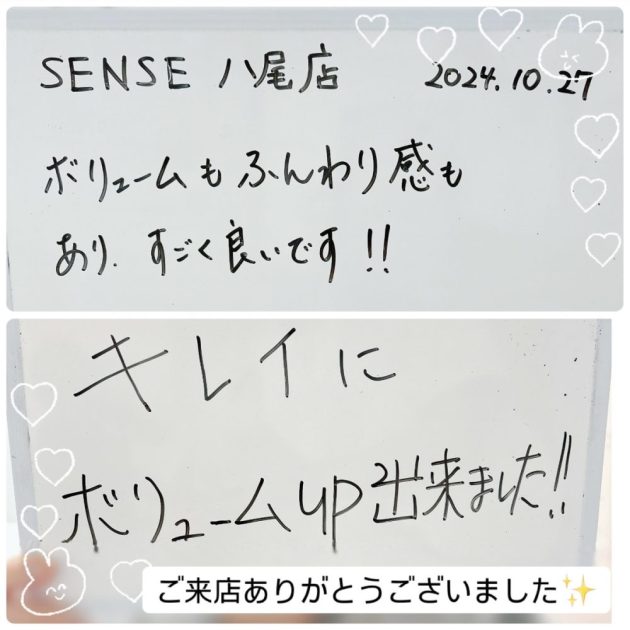 SENSE 八尾店 2024.10.27
ボリュームもふんわり感も
あり、すごく良いです!!
キレイに
ボリュームup出来ました!!
ご来店ありがとうございました✨